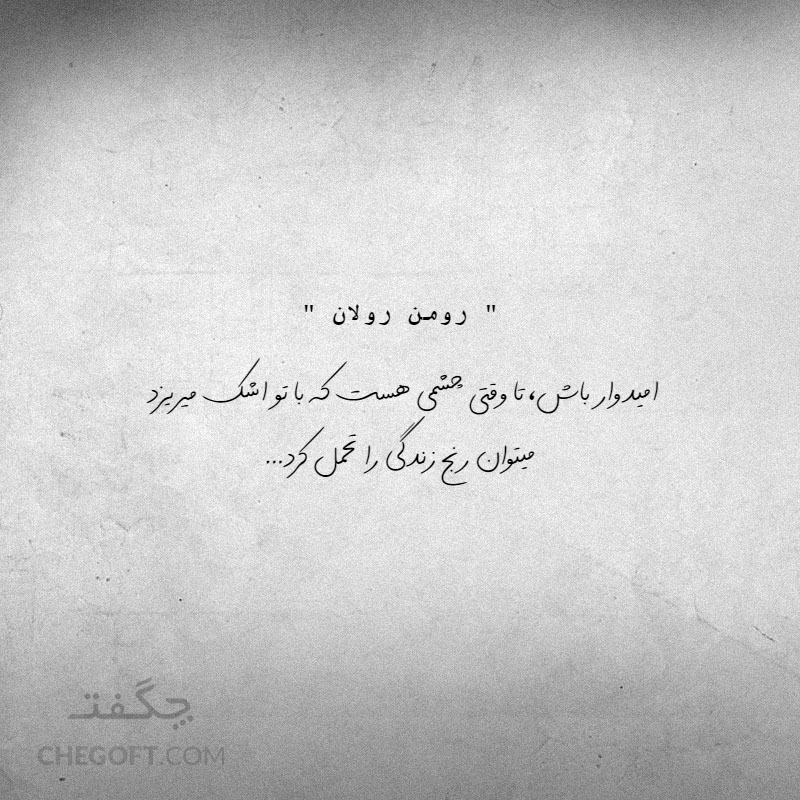 " رومن رولان "
امیدوار باش، تا وقتی چشمی هست که با تو اشک میریزد
میتوان رنج زندگی را تحمل کرد...
چگفت
CHEGOFT.COM